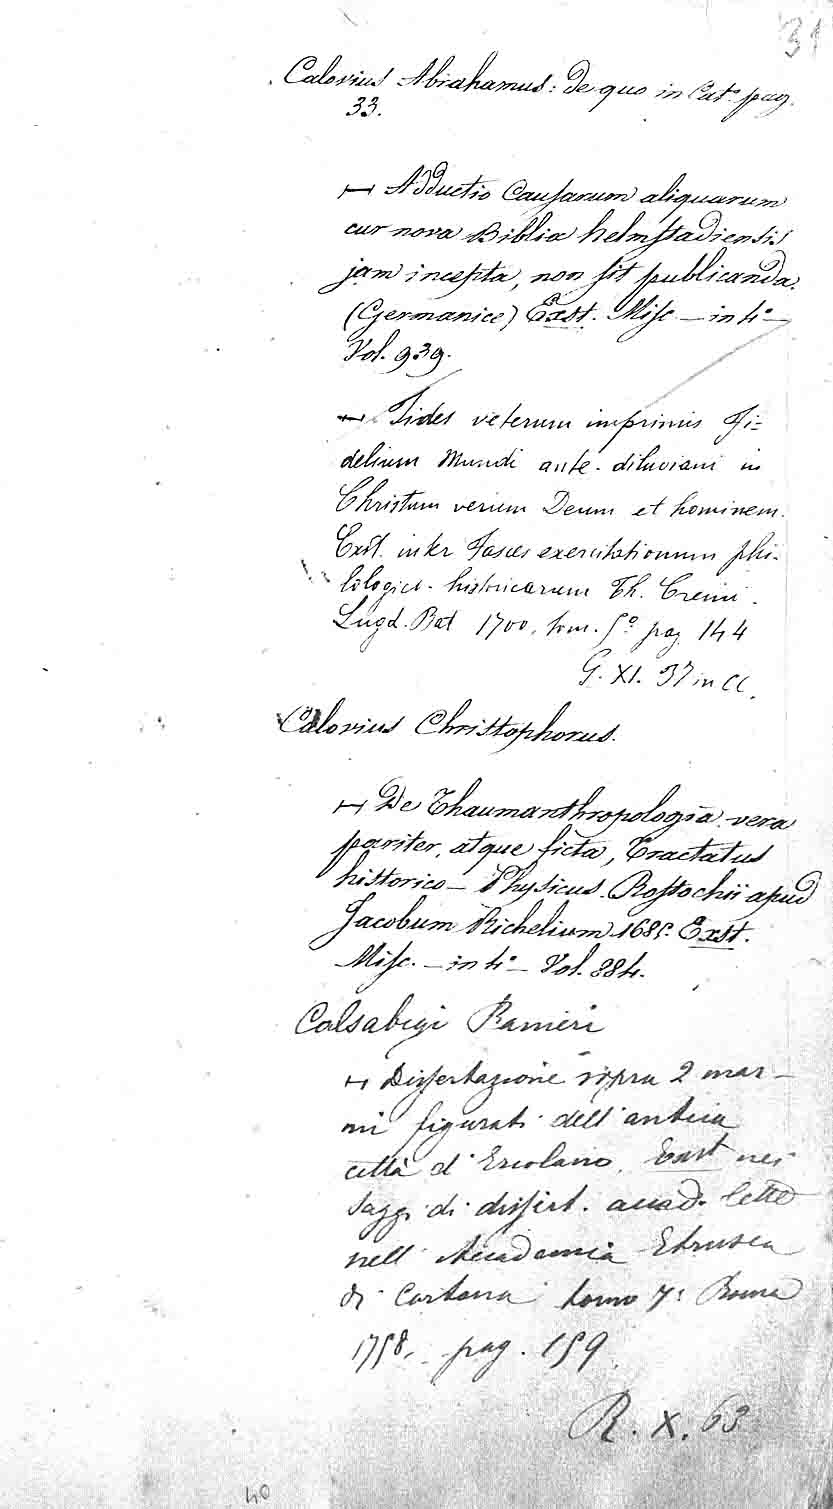 31
Calovius Abrahamus: de quo in Cat.º pag.
33.
⊢ Adductio Causarum aliquarum
cur nova Biblia helmstadiensis
jam incepta, non sit publicanda.
(Germanice) Exst. Misc – in 4º –
Vol. 939.
⊢ Fides veterum imprimis Fi=
delium Mundi ante-diluviani in
Christum verum Deum et hominem.
Exst. inter Fasces exercitationum phi-
lologico-historicarum Th. Crenii.
Lugd. Bat 1700, tom. 5º pag 144
G. XI. 37 in CC.
Calovius Christophorus.
⊢ De Thaumanthropologia vera
pariter, atque ficta, Tractatus
historico – Physicus. Rostochii apud
Jacobum Richelium 1685. Exst.
Misc. – in 4º – Vol. 884.
Calsabigi Ranieri
⊢ Dissertazione sopra 2 mar–
mi figurati dell'antica
città d'Ercolano. Exst nei
Saggi di dissert. accad. lette
nell' Accademia Etrusca
di Cortona tomo 7º Roma
1758. pag. 159.
R. X. 63
40